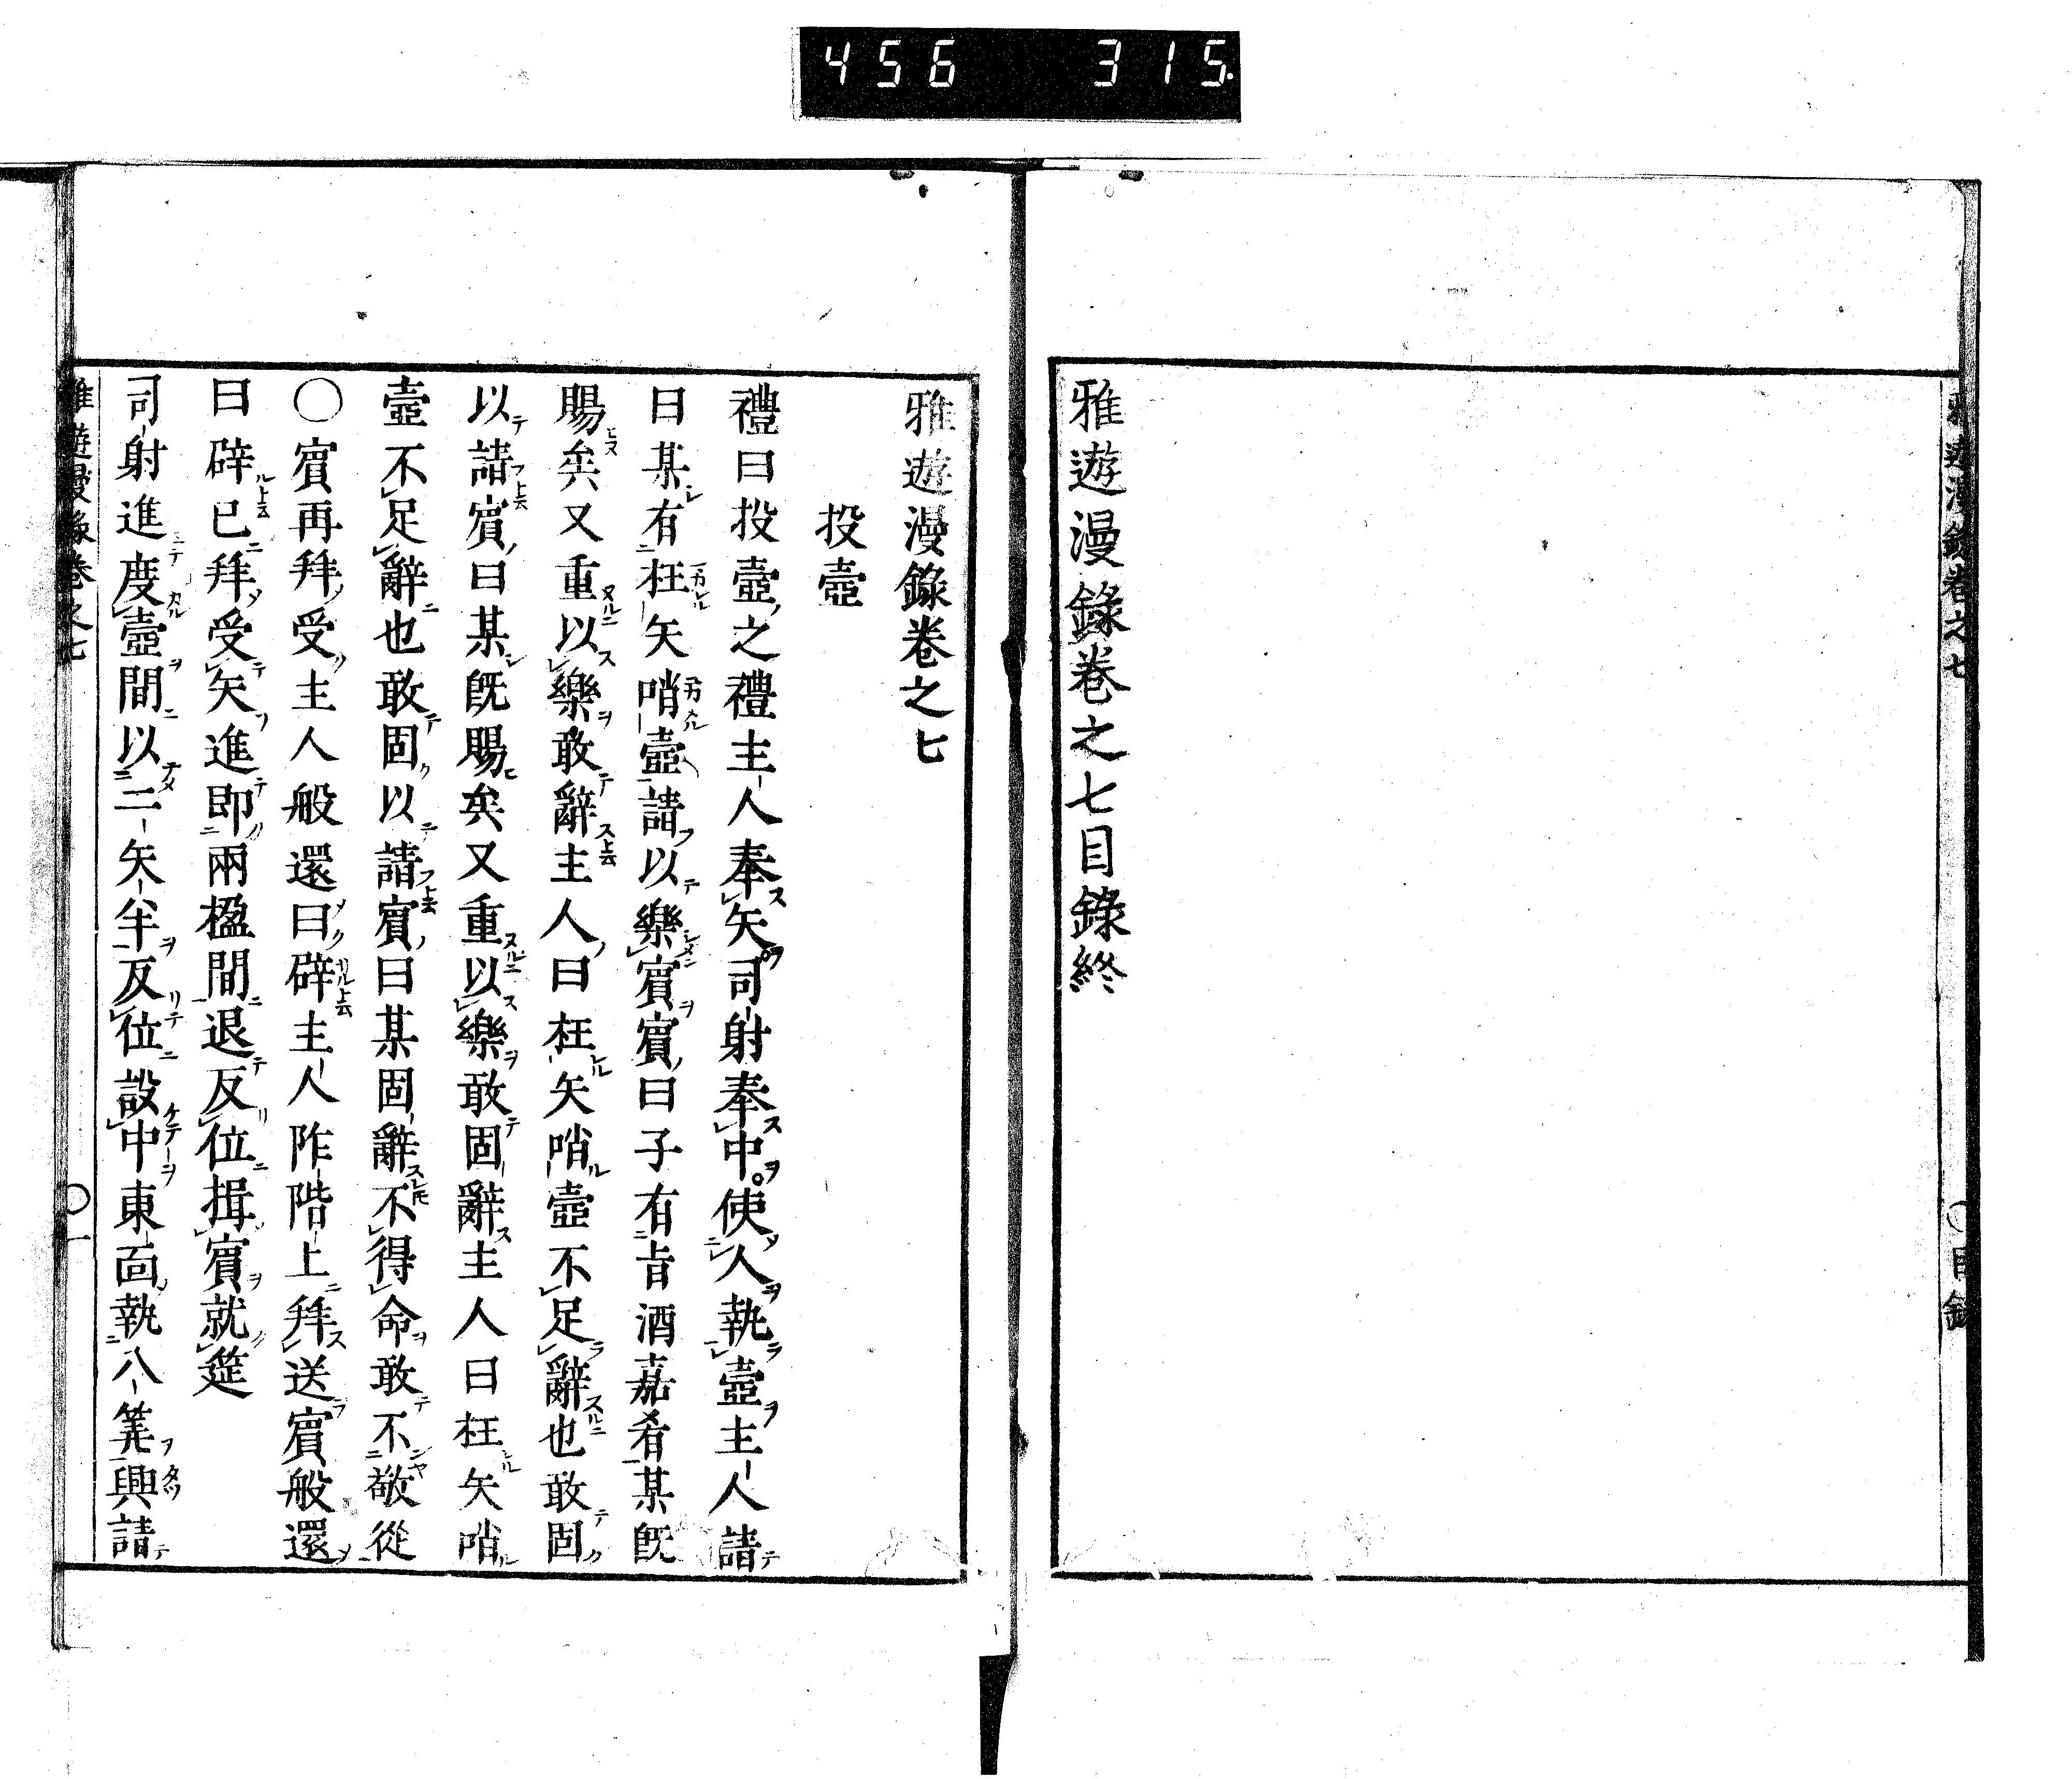 456 315
雅遊漫錄卷之七
〇目錄
雅遊漫錄卷之七目錄終
雅遊漫錄卷之七
投壺
禮曰投壺之禮主人奉矢司射奉中使人執壺主人請
曰某有枉矢哨壺請以樂賓賓曰子有旨酒嘉肴某既
賜矣又重以樂敢辭主人曰枉矢哨壺不足辭也敢固
以請賓曰某既賜矣又重以樂敢固辭主人曰枉矢哨
壺不足辭也敢固以請賓曰某固辭不得命敢不敬從
〇賓再拜受主人般還曰辟主人阼階上拜送賓般還
曰辟已拜受矢進即兩楹間退反位揖賓就筵
司射進度壺間以二矢半反位設中東面執八筭興請
雅遊漫錄卷之七
〇一